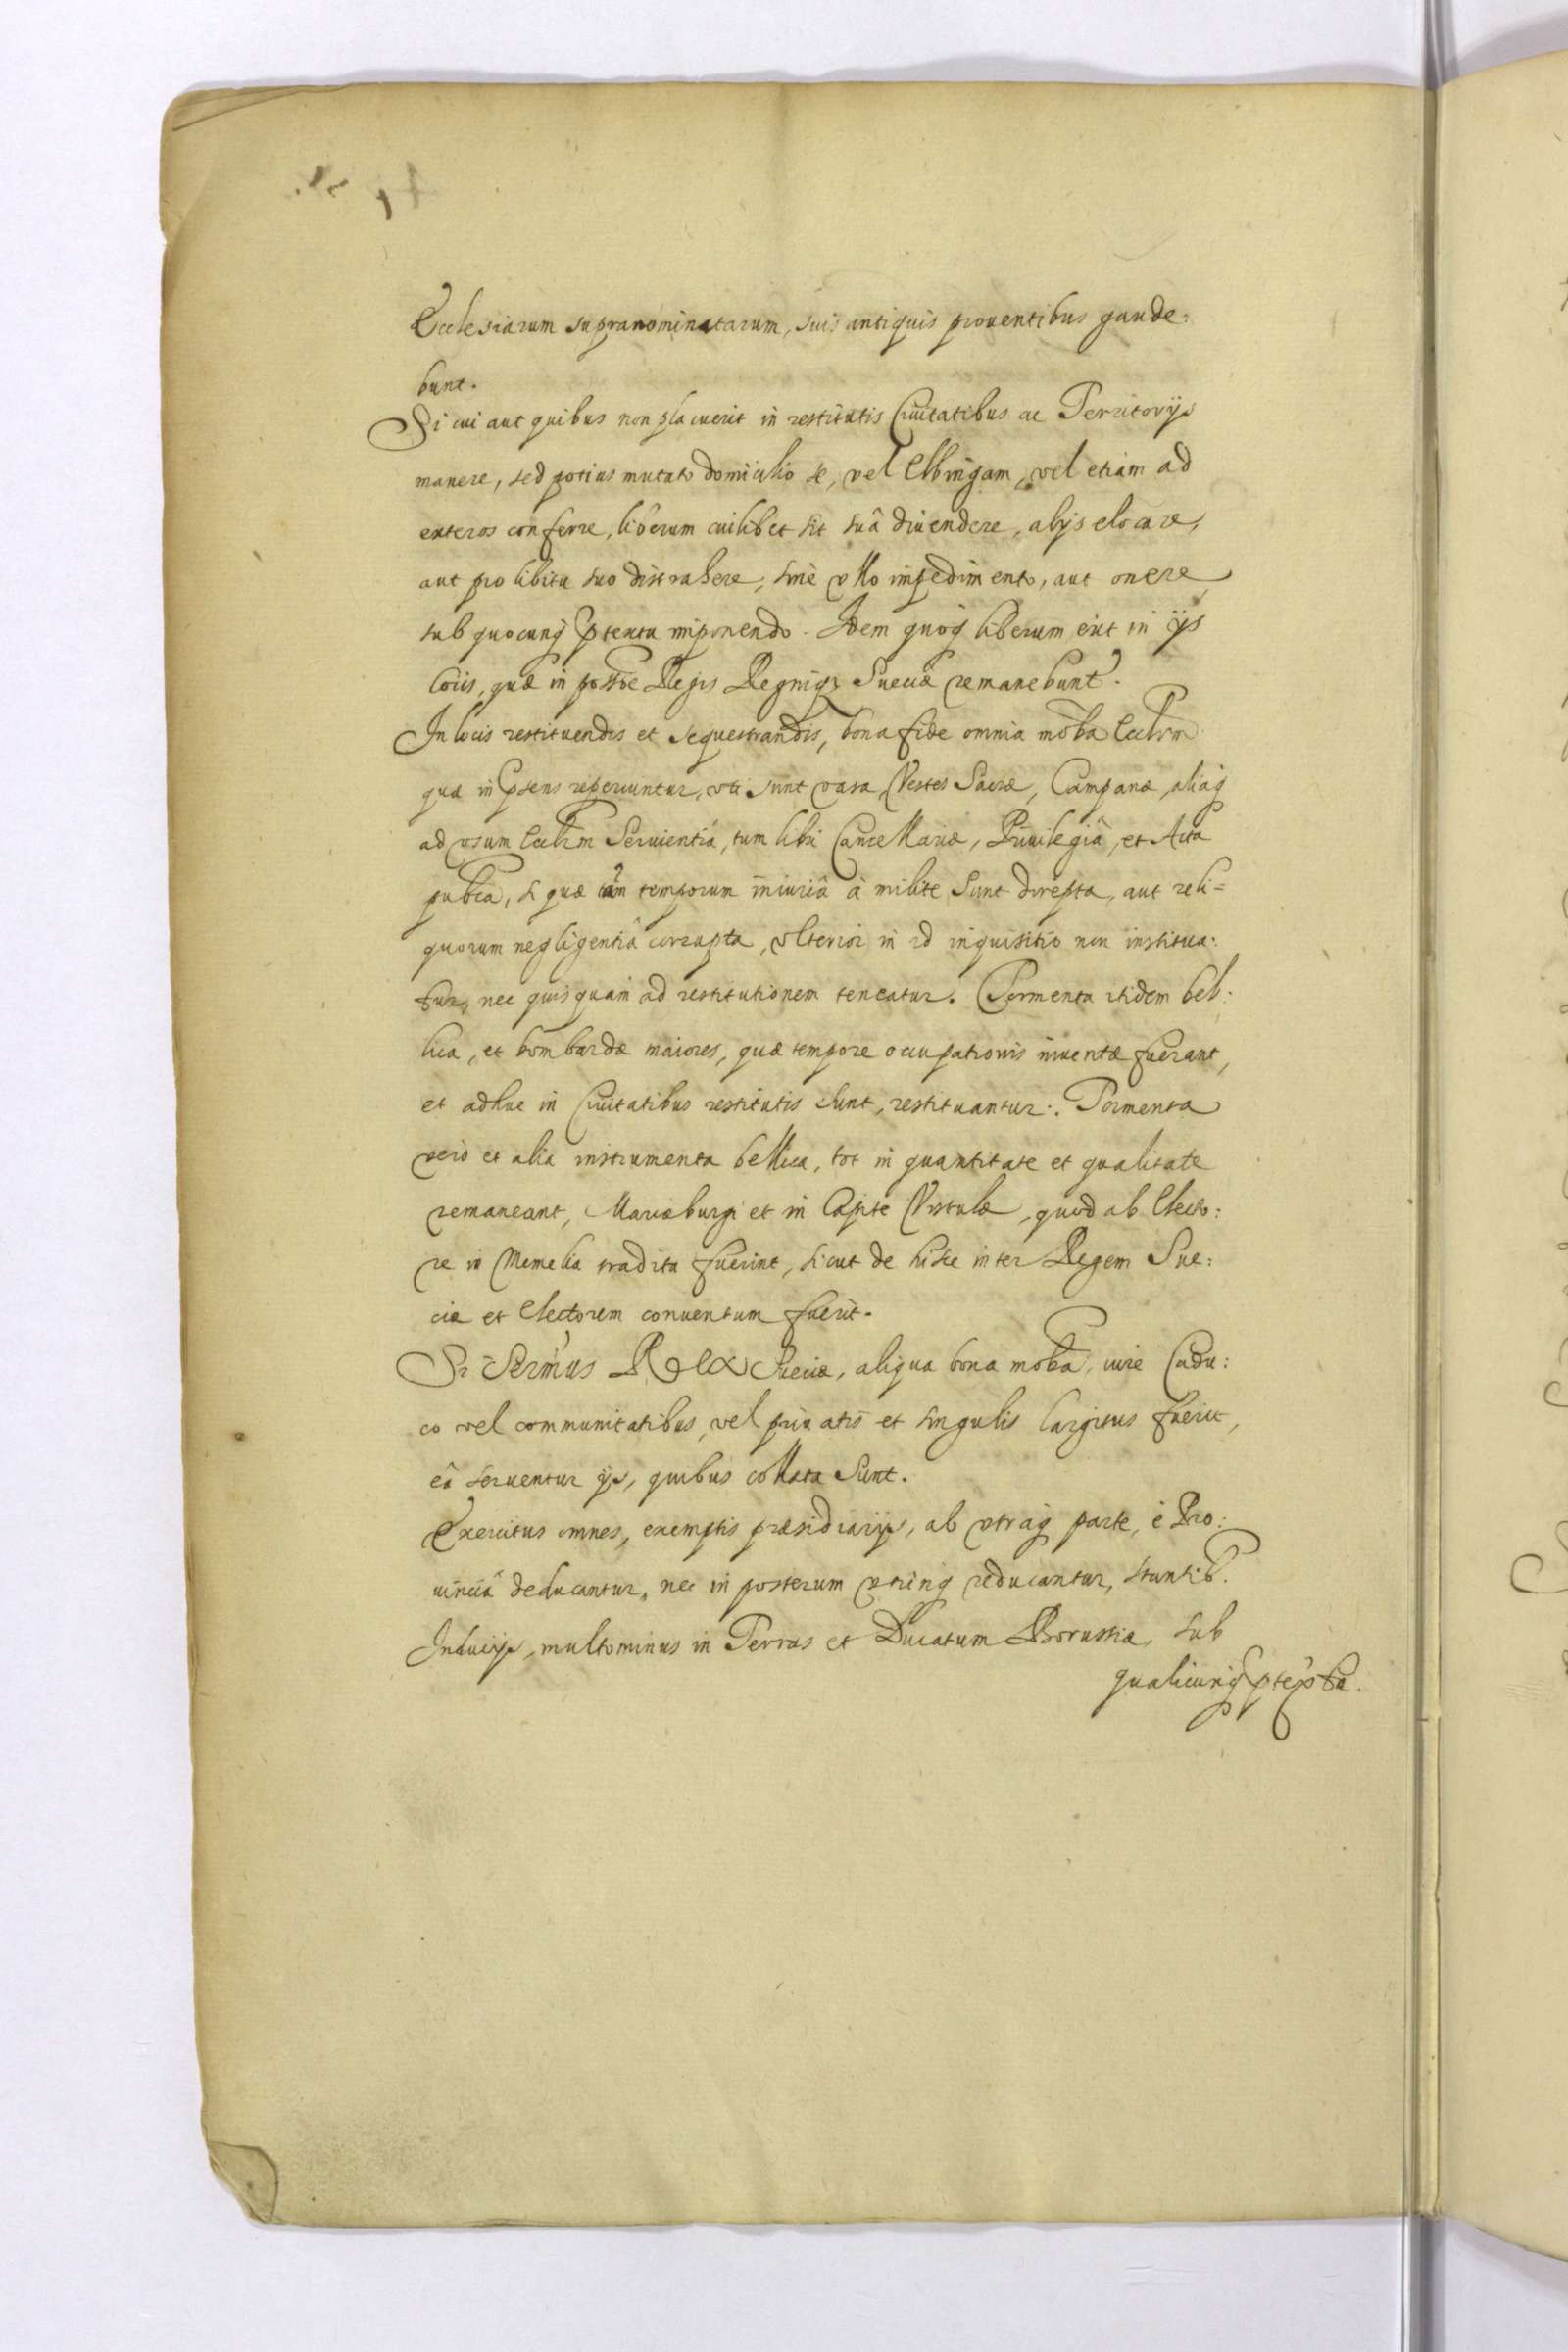 Ecclesiarum supranominatarum, suis antiquis prouentibus gaude:
bunt.
Si cui aut quibus non placuerit in restitutis Ciuitatibus ac Territorijs
manere, sed potius mutato domicilio se, vel Elbingam, vel etiam ad
exteros conferre, liberum cuilibet sit suâ diuendere, alijs elocare,
aut pro libitu suo distrahere, sinè vllo impedimento, aut onere
sub quocunq ptextu imponendo. Idem quoq liberum erit in ijs
locis, quæ in posse Regis Regniq Sueciæ remanebunt.
In locis restituendis et sequestrandis, bona fide omnia moba Eccłrm
quæ in psens reperiuntur, vti sunt vasa, Vestes Sacræ, Campanæ, aliaq
ad vsum Eccłrm Seruientia, tum libri Cancellariæ, Priuilegia, et Acta
pubca, si quæ tam temporum iniuriâ à milite Sunt direpta, aut reli=
quorum negligentiâ corrupta, vlterior in id inquisitio non institua:
tur, nec quisquam ad restitutionem teneatur. Tormenta itidem bel:
lica, et bombardæ maiores, quæ tempore occupationis inuentæ fuerant,
et adhuc in Ciuitatibus restitutis sunt, restituantur. Tormenta
verò et alia instrumenta bellica, tot in quantitate et qualitate
remaneant, Mariæburgi et in Capite Vistulæ, quod ab Electo:
re in Memelia tradita fuerint, sicut de hisce inter Regem Sue:
ciæ et Electorem conuentum fuerit.
Si Sermus REX Sueciæ, aliqua bona moba, iure Cadu:
co vel communitatibus, vel priuatis et singulis largitus fuerit,
ea seruentur ijs, quibus collata Sunt.
Exercitus omnes, exemptis præsidiarijs, ab vtraq parte, è Pro:
uinciâ deducantur, nec in posterum vtrinq reducantur, stantib.
Inducijs, multominus in Terras et Ducatum Borussiæ, sub
qualicunq ptextu.